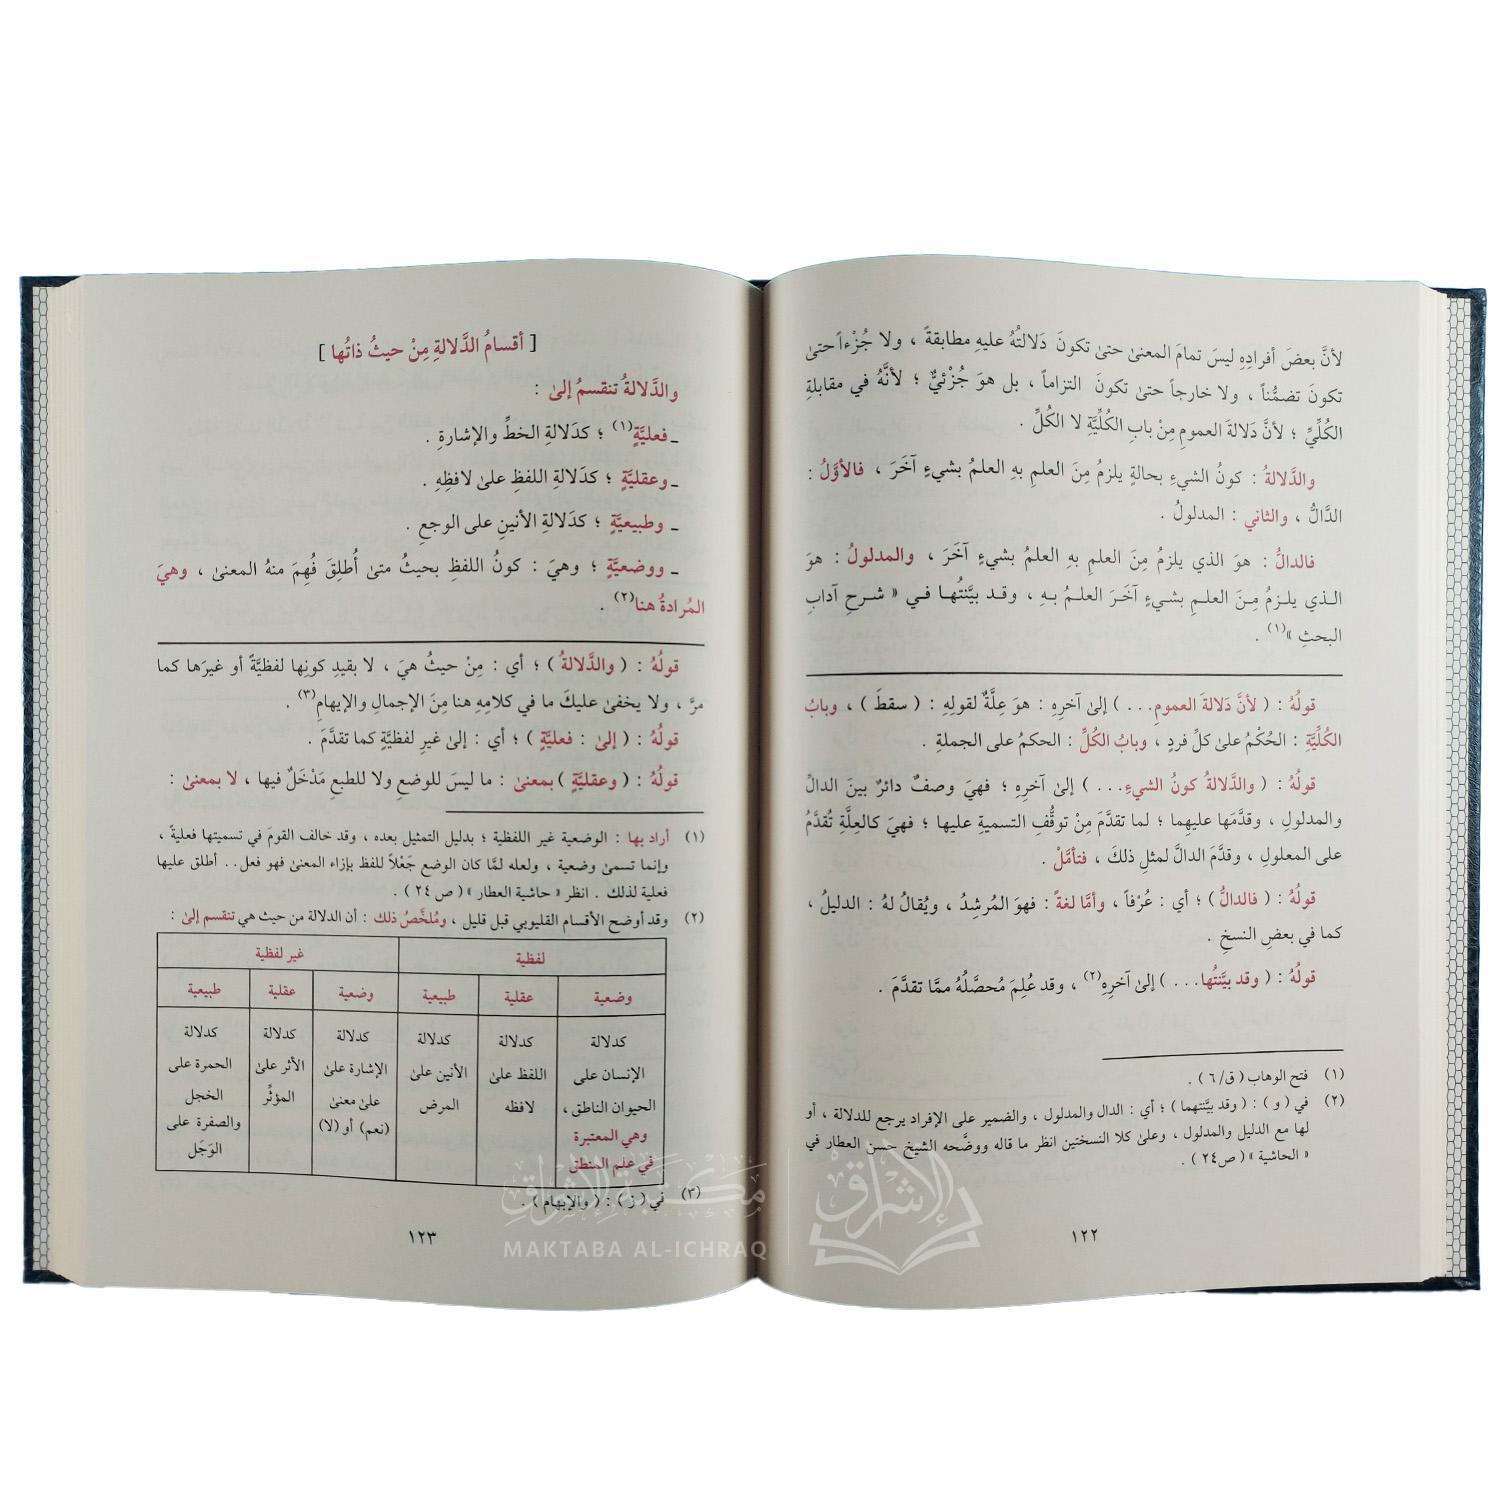 لأنَّ بعضَ أفرادِهِ ليسَ تمامَ المعنىٰ حتىٰ تكونَ دَلالتُهُ عليهِ مطابقةً ، ولا جُزْءاً حتىٰ
تكونَ تضمُّناً ، ولا خارجاً حتىٰ تكونَ التزاماً ، بل هوَ جُزْئيٌّ ؛ لأنَّهُ في مقابلةِ
الكُلِّيِّ ؛ لأنَّ دَلالةَ العمومِ مِنْ بابِ الكُلِّيَّةِ لا الكُلِّ .
والدَّلالةُ : كونُ الشيءِ بحالةٍ يلزمُ مِنَ العلمِ بهِ العلمُ بشيءٍ آخَرَ ، فالأوَّلُ :
الدَّالُّ ، والثاني : المدلولُ .
فالدالُّ : هوَ الذي يلزمُ مِنَ العلمِ بهِ العلمُ بشيءٍ آخَرَ ، والمدلولُ : هوَ
الذي يلزمُ مِنَ العلمِ بشيءٍ آخَرَ العلمُ بهِ ، وقد بيَّنتُها في « شرحِ آدابِ
البحثِ »(١) .
قولُهُ : ( لأنَّ دَلالةَ العمومِ... ) إلىٰ آخرِهِ : هوَ عِلَّةٌ لقولِهِ : ( سقطَ ) ، وبابُ
الكُلِّيَّةِ : الحُكْمُ علىٰ كلِّ فردٍ ، وبابُ الكُلِّ : الحكمُ على الجملةِ .
قولُهُ : ( والدَّلالةُ كونُ الشيءِ... ) إلىٰ آخرِهِ ؛ فهيَ وصفٌ دائرٌ بينَ الدالِّ
والمدلولِ ، وقدَّمَها عليهِما ؛ لما تقدَّمَ مِنْ توقُّفِ التسميةِ عليها ؛ فهيَ كالعِلَّةِ تُقدَّمُ
على المعلولِ ، وقدَّمَ الدالَّ لمثلِ ذلكَ ، فتأمَّلْ .
قولُهُ : ( فالدالُّ ) ؛ أي : عُرْفاً ، وأمَّا لغةً : فهوَ المُرشِدُ ، ويُقالُ لهُ : الدليلُ ،
كما في بعضِ النسخِ .
قولُهُ : ( وقد بيَّنتُها... ) إلىٰ آخرِهِ(٢) ، وقد عُلِمَ مُحصَّلُهُ ممَّا تقدَّمَ .
(١) فتح الوهاب ( ق/٦ ) .
(٢) في ( و ) : ( وقد بيَّنتهما ) ؛ أي : الدال والمدلول ، والضمير على الإفراد يرجع للدلالة ، أو
لها مع الدليل والمدلول ، وعلىٰ كلا النسختين انظر ما قاله ووضَّحه الشيخ حسن العطار في
« الحاشية » ( ص٢٤ ) .
١٢٢
[ أقسامُ الدَّلالةِ مِنْ حيثُ ذاتُها ]
والدَّلالةُ تنقسمُ إلىٰ :
ـ فعليَّةٍ(١) ؛ كدَلالةِ الخطِّ والإشارةِ .
ـ وعقليَّةٍ ؛ كدَلالةِ اللفظِ علىٰ لافظِهِ .
ـ وطبيعيَّةٍ ؛ كدَلالةِ الأنينِ على الوجعِ .
ـ ووضعيَّةٍ ؛ وهيَ : كونُ اللفظِ بحيثُ متىٰ أُطلِقَ فُهِمَ منهُ المعنىٰ ، وهيَ
المُرادةُ هنا(٢) .
قولُهُ : ( والدَّلالةُ ) ؛ أي : مِنْ حيثُ هيَ ، لا بقيدِ كونِها لفظيَّةً أو غيرَها كما
مرَّ ، ولا يخفىٰ عليكَ ما في كلامِهِ هنا مِنَ الإجمالِ والإيهامِ(٣) .
قولُهُ : ( إلىٰ : فعليَّةٍ ) ؛ أي : إلىٰ غيرِ لفظيَّةٍ كما تقدَّمَ .
قولُهُ : ( وعقليَّةٍ ) بمعنىٰ : ما ليسَ للوضعِ ولا للطبعِ مَدْخَلٌ فيها ، لا بمعنىٰ :
(١) أراد بها : الوضعية غير اللفظية ؛ بدليل التمثيل بعده ، وقد خالف القومَ في تسميتها فعليةً ،
وإنما تسمىٰ وضعية ، ولعله لمَّا كان الوضع جَعْلاً للفظ بإزاء المعنىٰ فهو فعل.. أطلق عليها
فعلية لذلك . انظر « حاشية العطار » ( ص ٢٤ ) .
(٢) وقد أوضح الأقسام القليوبي قبل قليل ، ومُلخَّصُ ذلك : أن الدلالة من حيث هي تنقسم إلىٰ :
لفظية غير لفظية
وضعية عقلية طبيعية وضعية عقلية طبيعية
كدلالة كدلالة كدلالة كدلالة كدلالة كدلالة
الإنسان على اللفظ علىٰ الأنين علىٰ الإشارة علىٰ الأثر علىٰ الحمرة على
الحيوان الناطق ، لافظه المرض علىٰ معنىٰ المؤثِّر الخجل
وهي المعتبرة (نعم) أو (لا) والصفرة على
في علم المنطق الوَجَل
(٣) في ( ز ) : ( والإبهام ) .
١٢٣
مكتبة الإشراق
الإشراق
MAKTABA AL-ICHRAQ